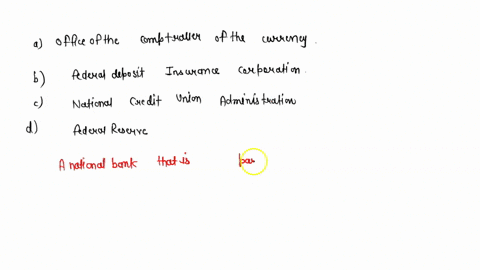 a) Office of the comptroller of the currency.
b) Federal deposit Insurance corporation.
c) National Credit Union Administration
d) Federal Reserve
A national bank that is par